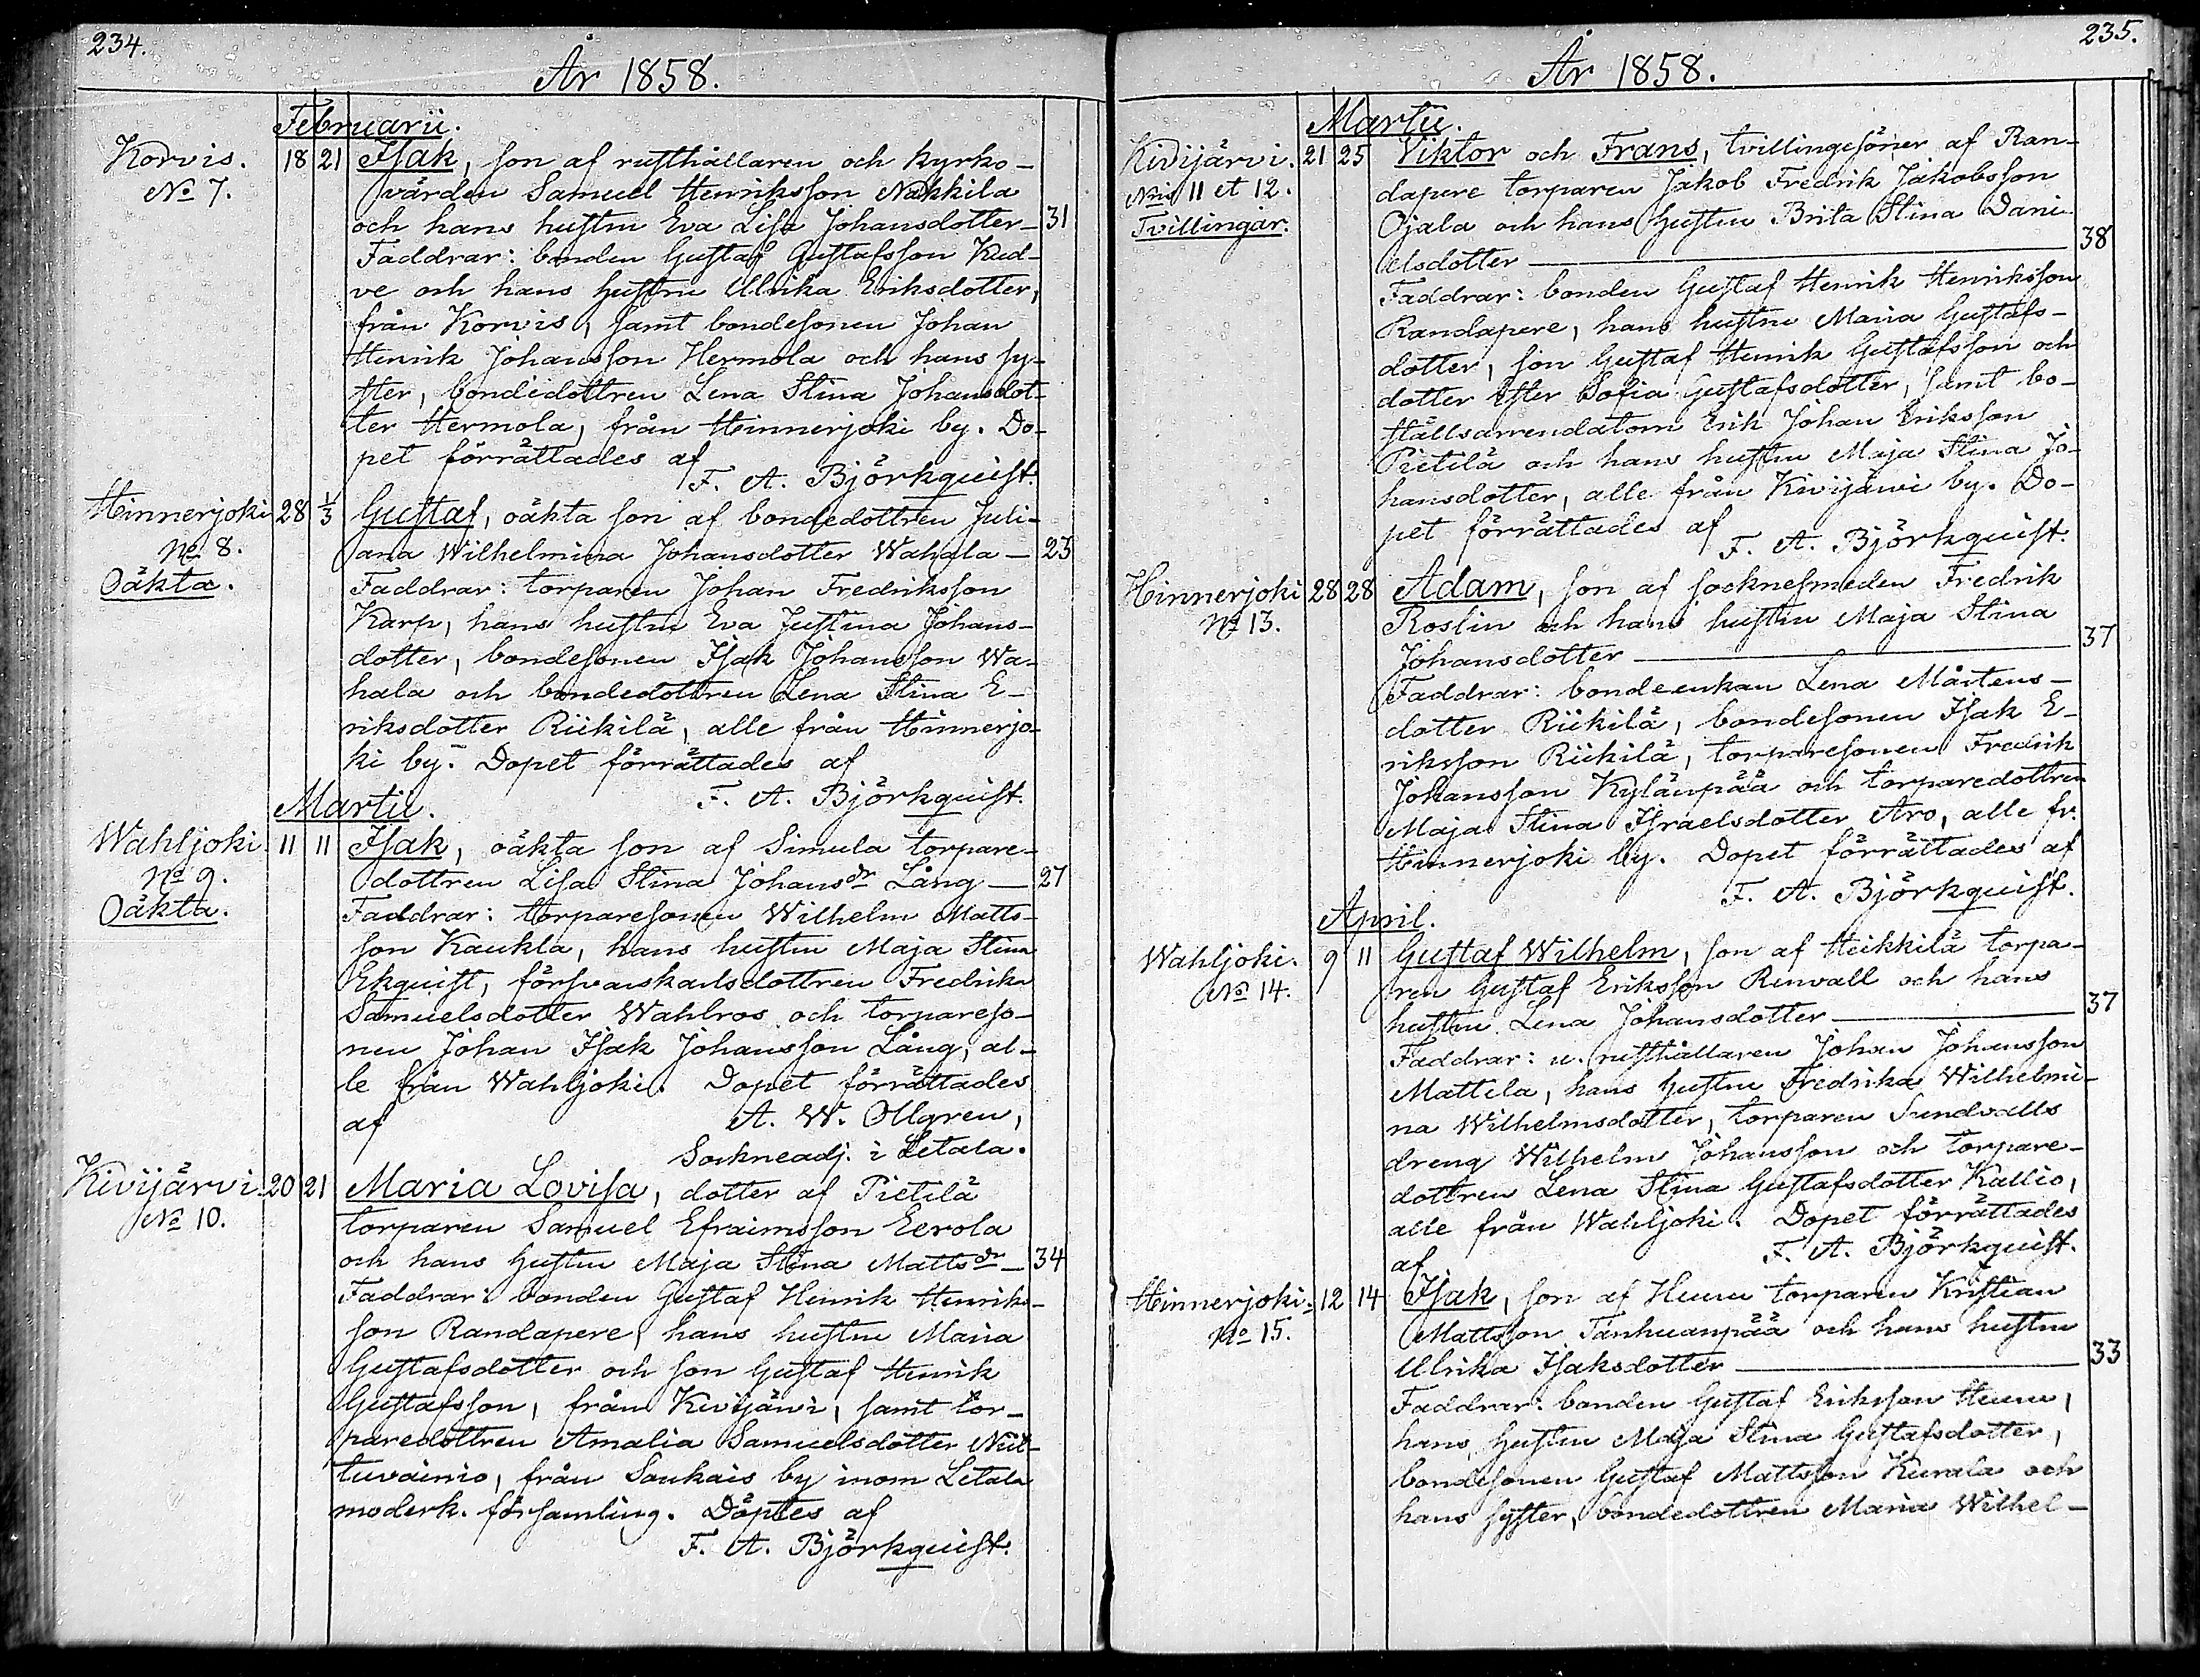 234.
År 1858.
Februarii.
Korvis. 18 21 Isak, son af rusthållaren och kyrko-
No 7. värden Samuel Henriksson Nakkila
och hans hustru Eva Lisa Johansdotter — 31
Faddrar: bonden Gustaf Gustafsson Kud-
ve och hans hustru Ulrika Eriksdotter,
från Korvis, samt bondesonen Johan
Henrik Johansson Hermola och hans sy-
ster, bondedottren Lena Stina Johansdot-
ter Hermola, från Hinnerjoki by. Do-
pet förrättades af
F. A. Björkquist.
Hinnerjoki 28 1/3 Gustaf, oäkta son af bondedottren Juli-
No 8. ana Wilhelmina Johansdotter Wahala — 23
Oäkta. Faddrar: torparen Johan Fredriksson
Karp, hans hustru Eva Justina Johans-
dotter, bondesonen Isak Johansson Wa-
hala och bondedottren Lena Stina E-
riksdotter Riikilä, alle från Hinnerjo-
ki by. Dopet förrättades af
F. A. Björkquist.
Martii.
Wahljoki 11 11 Isak, oäkta son af Simula torpare-
No 9. dottren Lisa Stina Johansdr Lång — 27
Oäkta. Faddrar: torparesonen Wilhelm Matts-
son Kaukla, hans hustru Maja Stina
Ekquist, försvarskarlsdottren Fredrika
Samuelsdotter Wahlros och torpareso-
nen Johan Isak Johansson Lång, al-
le från Wahljoki. Dopet förrättades
af A. W. Ollgren,
Sockneadj. i Letala.
Kivijärvi 20 21 Maria Lovisa, dotter af Pietilä
No 10. torparen Samuel Efraimsson Eerola
och hans hustru Maja Stina Mattsdr — 34
Faddrar: bonden Gustaf Henrik Henriks-
son Randapere, hans hustru Maria
Gustafsdotter och son Gustaf Henrik
Gustafsson, från Kivijärvi, samt tor-
paredottren Amalia Samuelsdotter Niit-
tuvainio, från Soukais by inom Letala
moderk. församling. Döptes af
F. A. Björkquist.
235.
År 1858.
Martii.
Kivijärvi. 21 25 Viktor och Frans, tvillingesöner af Ran-
Nris 11 et 12. dapere torparen Jakob Fredrik Jakobsson
Tvillingar. Ojala och hans hustru Brita Stina Dani-
elsdotter — 38
Faddrar: bonden Gustaf Henrik Henriksson
Randapere, hans hustru Maria Gustafs-
dotter, son Gustaf Henrik Gustafsson och
dotter Ester Sofia Gustafsdotter, samt bo-
ställsarrendatorn Erik Johan Eriksson
Pietilä och hans hustru Maja Stina Jo-
hansdotter, alle från Kivijärvi by. Do-
pet förrättades af
F. A. Björkquist.
Hinnerjoki 28 28 Adam, son af socknesmeden Fredrik
No 13. Roslin och hans hustru Maja Stina
Johansdotter — 37
Faddrar: bondeenkan Lena Mårtens-
dotter Riikilä, bondesonen Isak E-
riksson Riikilä, torparesonen Fredrik
Johansson Kylänpää och torparedottren
Maja Stina Israelsdotter Aro, alle fr.
Hinnerjoki by. Dopet förrättades af
F. A. Björkquist.
April.
Wahljoki. 9 11 Gustaf Wilhelm, son af Heikkilä torpa-
No 14. ren Gustaf Eriksson Renvall och hans
hustru Lena Johansdotter — 37
Faddrar: u. rusthållaren Johan Johansson
Mattila, hans hustru Fredrika Wilhelmi-
na Wilhelmsdotter, torparen Sundvalls
dreng Wilhelm Johansson och torpare-
dottren Lena Stina Gustafsdotter Kallio,
alle från Wahljoki. Dopet förrättades
af F. A. Björkquist.
Hinnerjoki. 12 14 Isak, son af Heuru torparen Kristian
No 15. Mattsson Tanhuanpää och hans hustru
Ulrika Isaksdotter — 33
Faddrar: bonden Gustaf Eriksson Heuru,
hans hustru Maja Stina Gustafsdotter,
bondesonen Gustaf Mattsson Kurala och
hans syster, bondedottren Maria Wilhel-